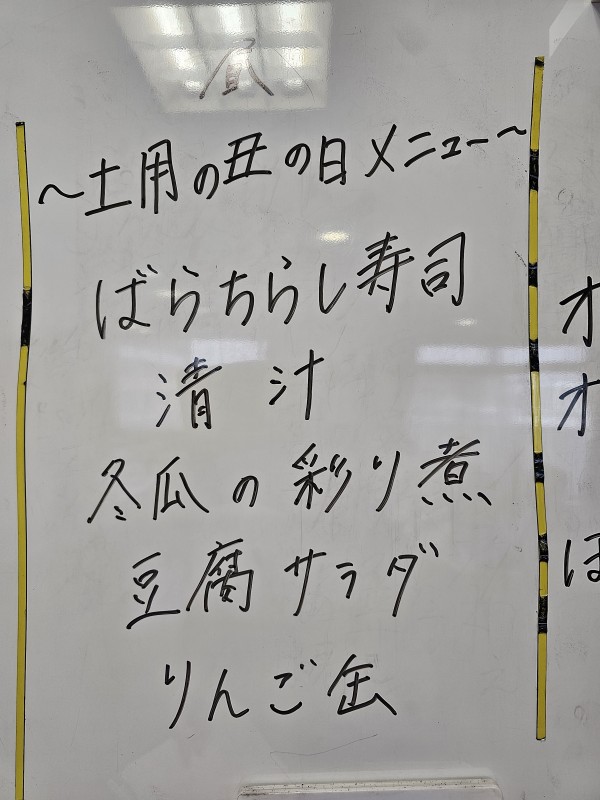 ~土用の丑の日メニュー~
ばらちらし寿司
清汁
冬瓜の彩り煮
豆腐サラダ
りんご缶
オ
オ
ほ